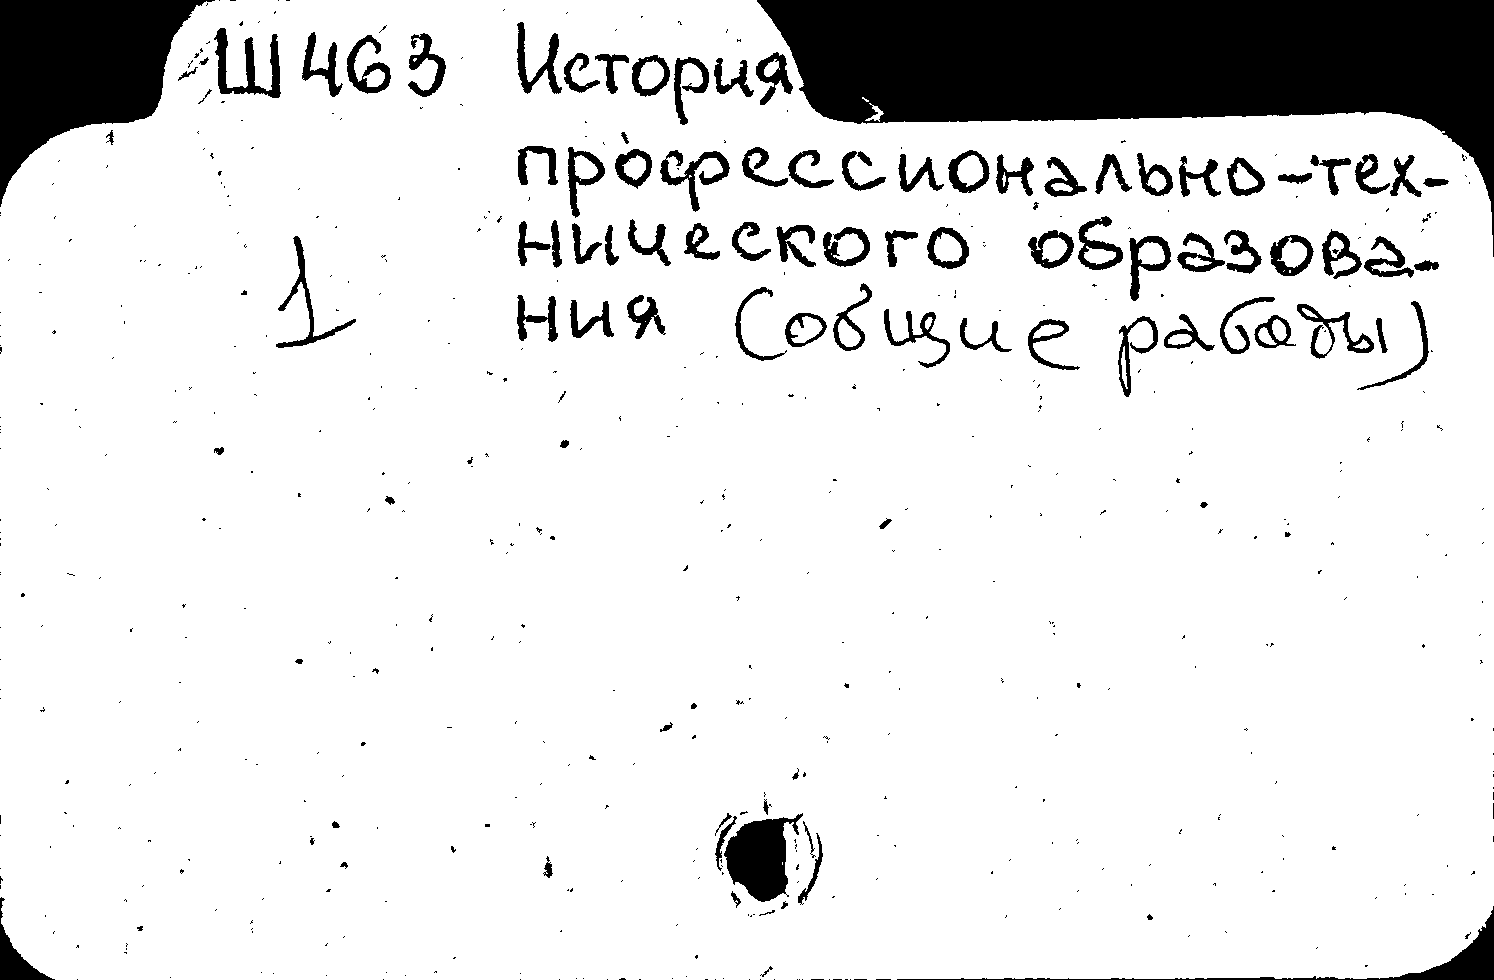 Ш463 История
профессионально-тех-
нического образова-
1
ния (общие работы)